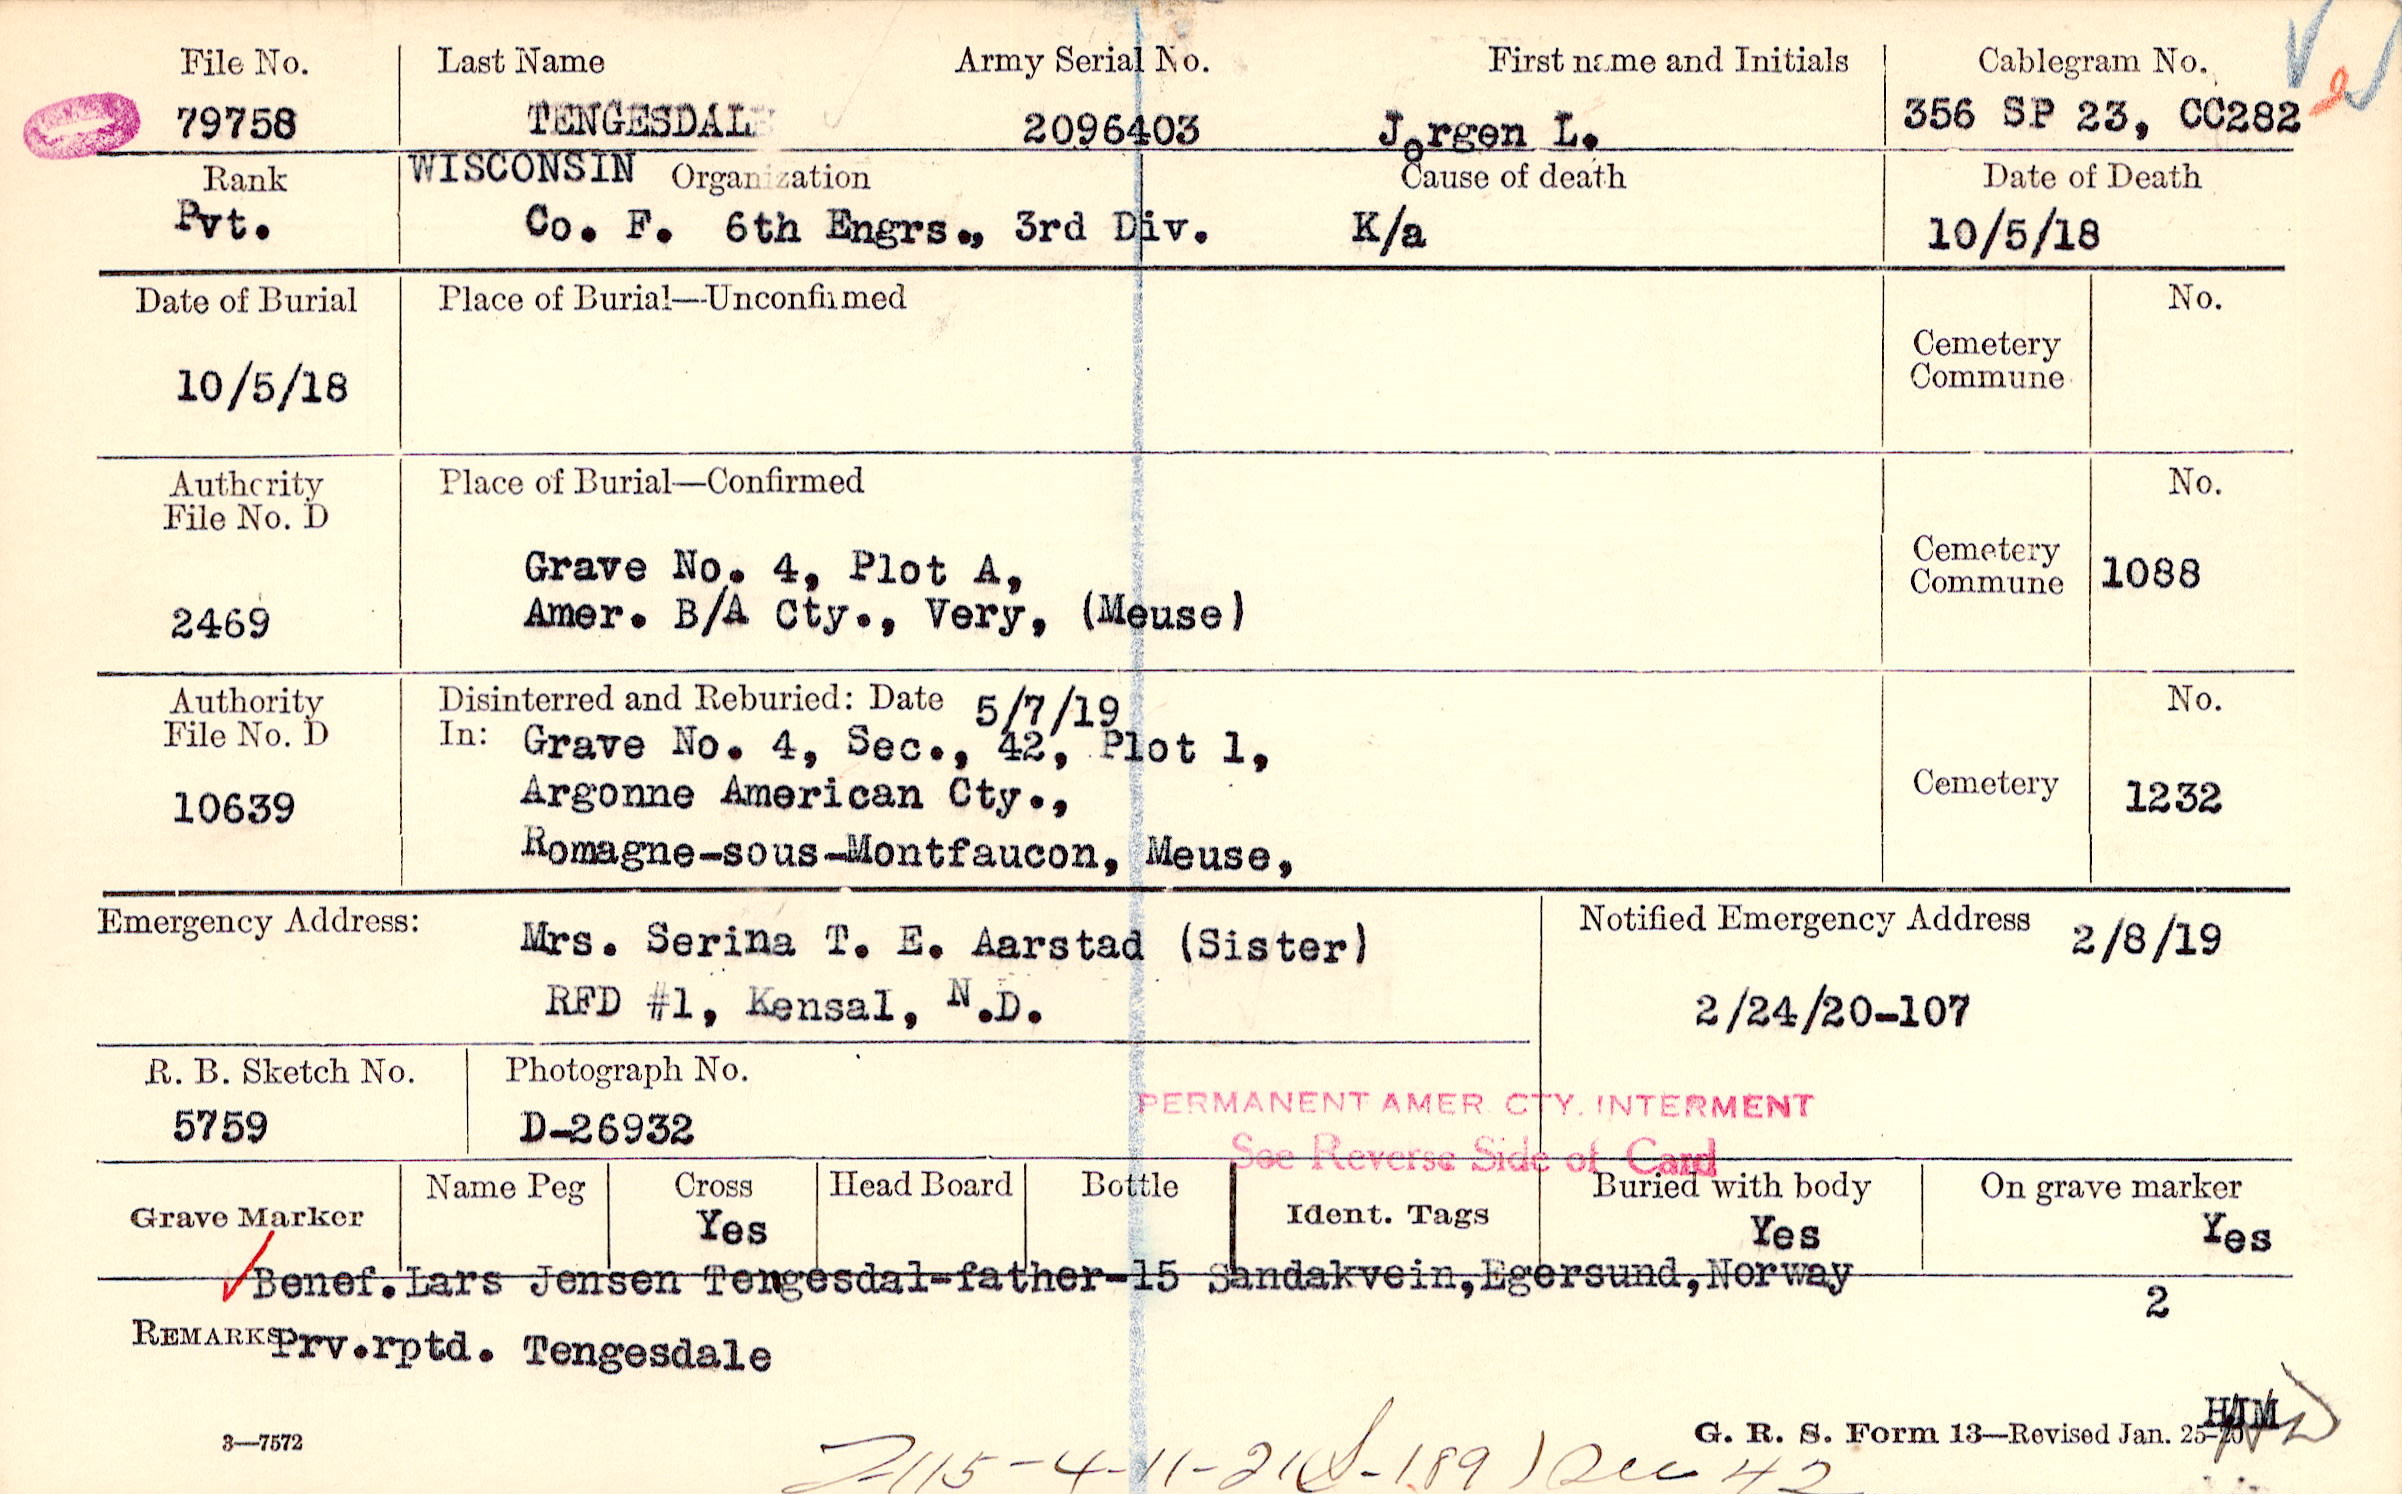 File No. Last Name Army Serial No. First name and Initials Cablegram No.
79758 TENGESDAL 2096403 Jorgen L. 356 SP 23, CC282
Rank WISCONSIN Organization Cause of death Date of Death
Pvt. Co. F. 6th Engrs., 3rd Div. K/a 10/5/18
Date of Burial Place of Burial—Unconfirmed No.
Cemetery
Commune
10/5/18
Authority Place of Burial—Confirmed No.
File No. D
Cemetery
Grave No. 4, Plot A, Commune 1088
2469 Amer. B/A Cty., Very, (Meuse)
Authority Disinterred and Reburied: Date 5/7/19 No.
File No. D In: Grave No. 4, Sec., 42, Plot 1,
10639 Argonne American Cty., Cemetery 1232
Romagne-sous-Montfaucon, Meuse,
Emergency Address: Mrs. Serina T. E. Aarstad (Sister) Notified Emergency Address 2/8/19
RFD #1, Kensal, N.D. 2/24/20-107
R. B. Sketch No. Photograph No.
5759 D-26932
PERMANENT AMER. CTY. INTERMENT
See Reverse Side of Card
Grave Marker Name Peg Cross Head Board Bottle Ident. Tags Buried with body On grave marker
Yes Yes Yes
Benef.Lars Jensen Tengesdal-father-15 Sandakvein,Egersund,Norway
2
REMARKS Prv.rptd. Tengesdale
HJM
3—7572 G. R. S. Form 13—Revised Jan. 25-